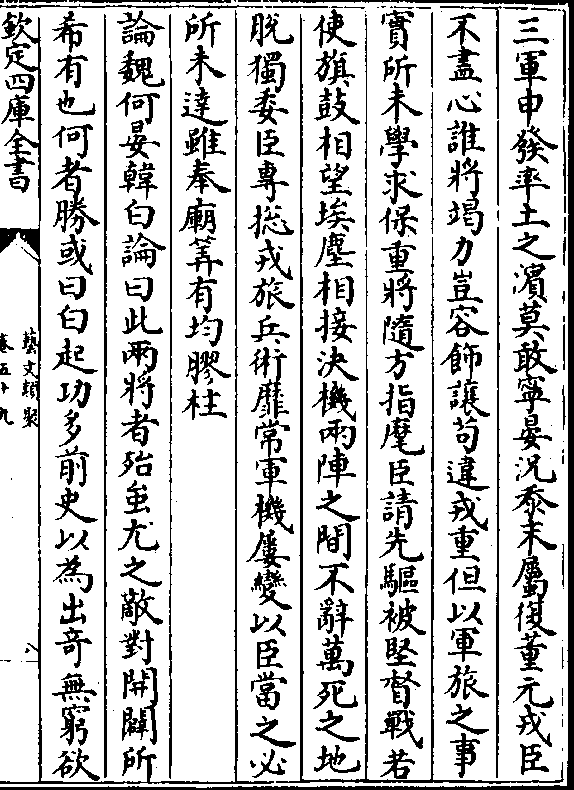 三軍申發率土之濱莫敢寧晏況忝末屬復董元戎臣
不盡心誰將竭力豈容飾讓苟違戎重但以軍旅之事
實所未學求保重將隨方指麾臣請先驅被堅督戰若
使旗鼓相望埃塵相接決機兩陣之間不辭萬死之地
脫獨委臣專揔戎旅兵術靡常軍機屢變以臣當之必
所未達雖奉廟筭有均膠柱
論魏何晏韓白論曰此兩將者殆蚩尤之敵對開闢所
希有也何者勝或曰白起功多前史以為出奇無窮欲
欽定四庫全書
藝文類聚
卷五十九
八